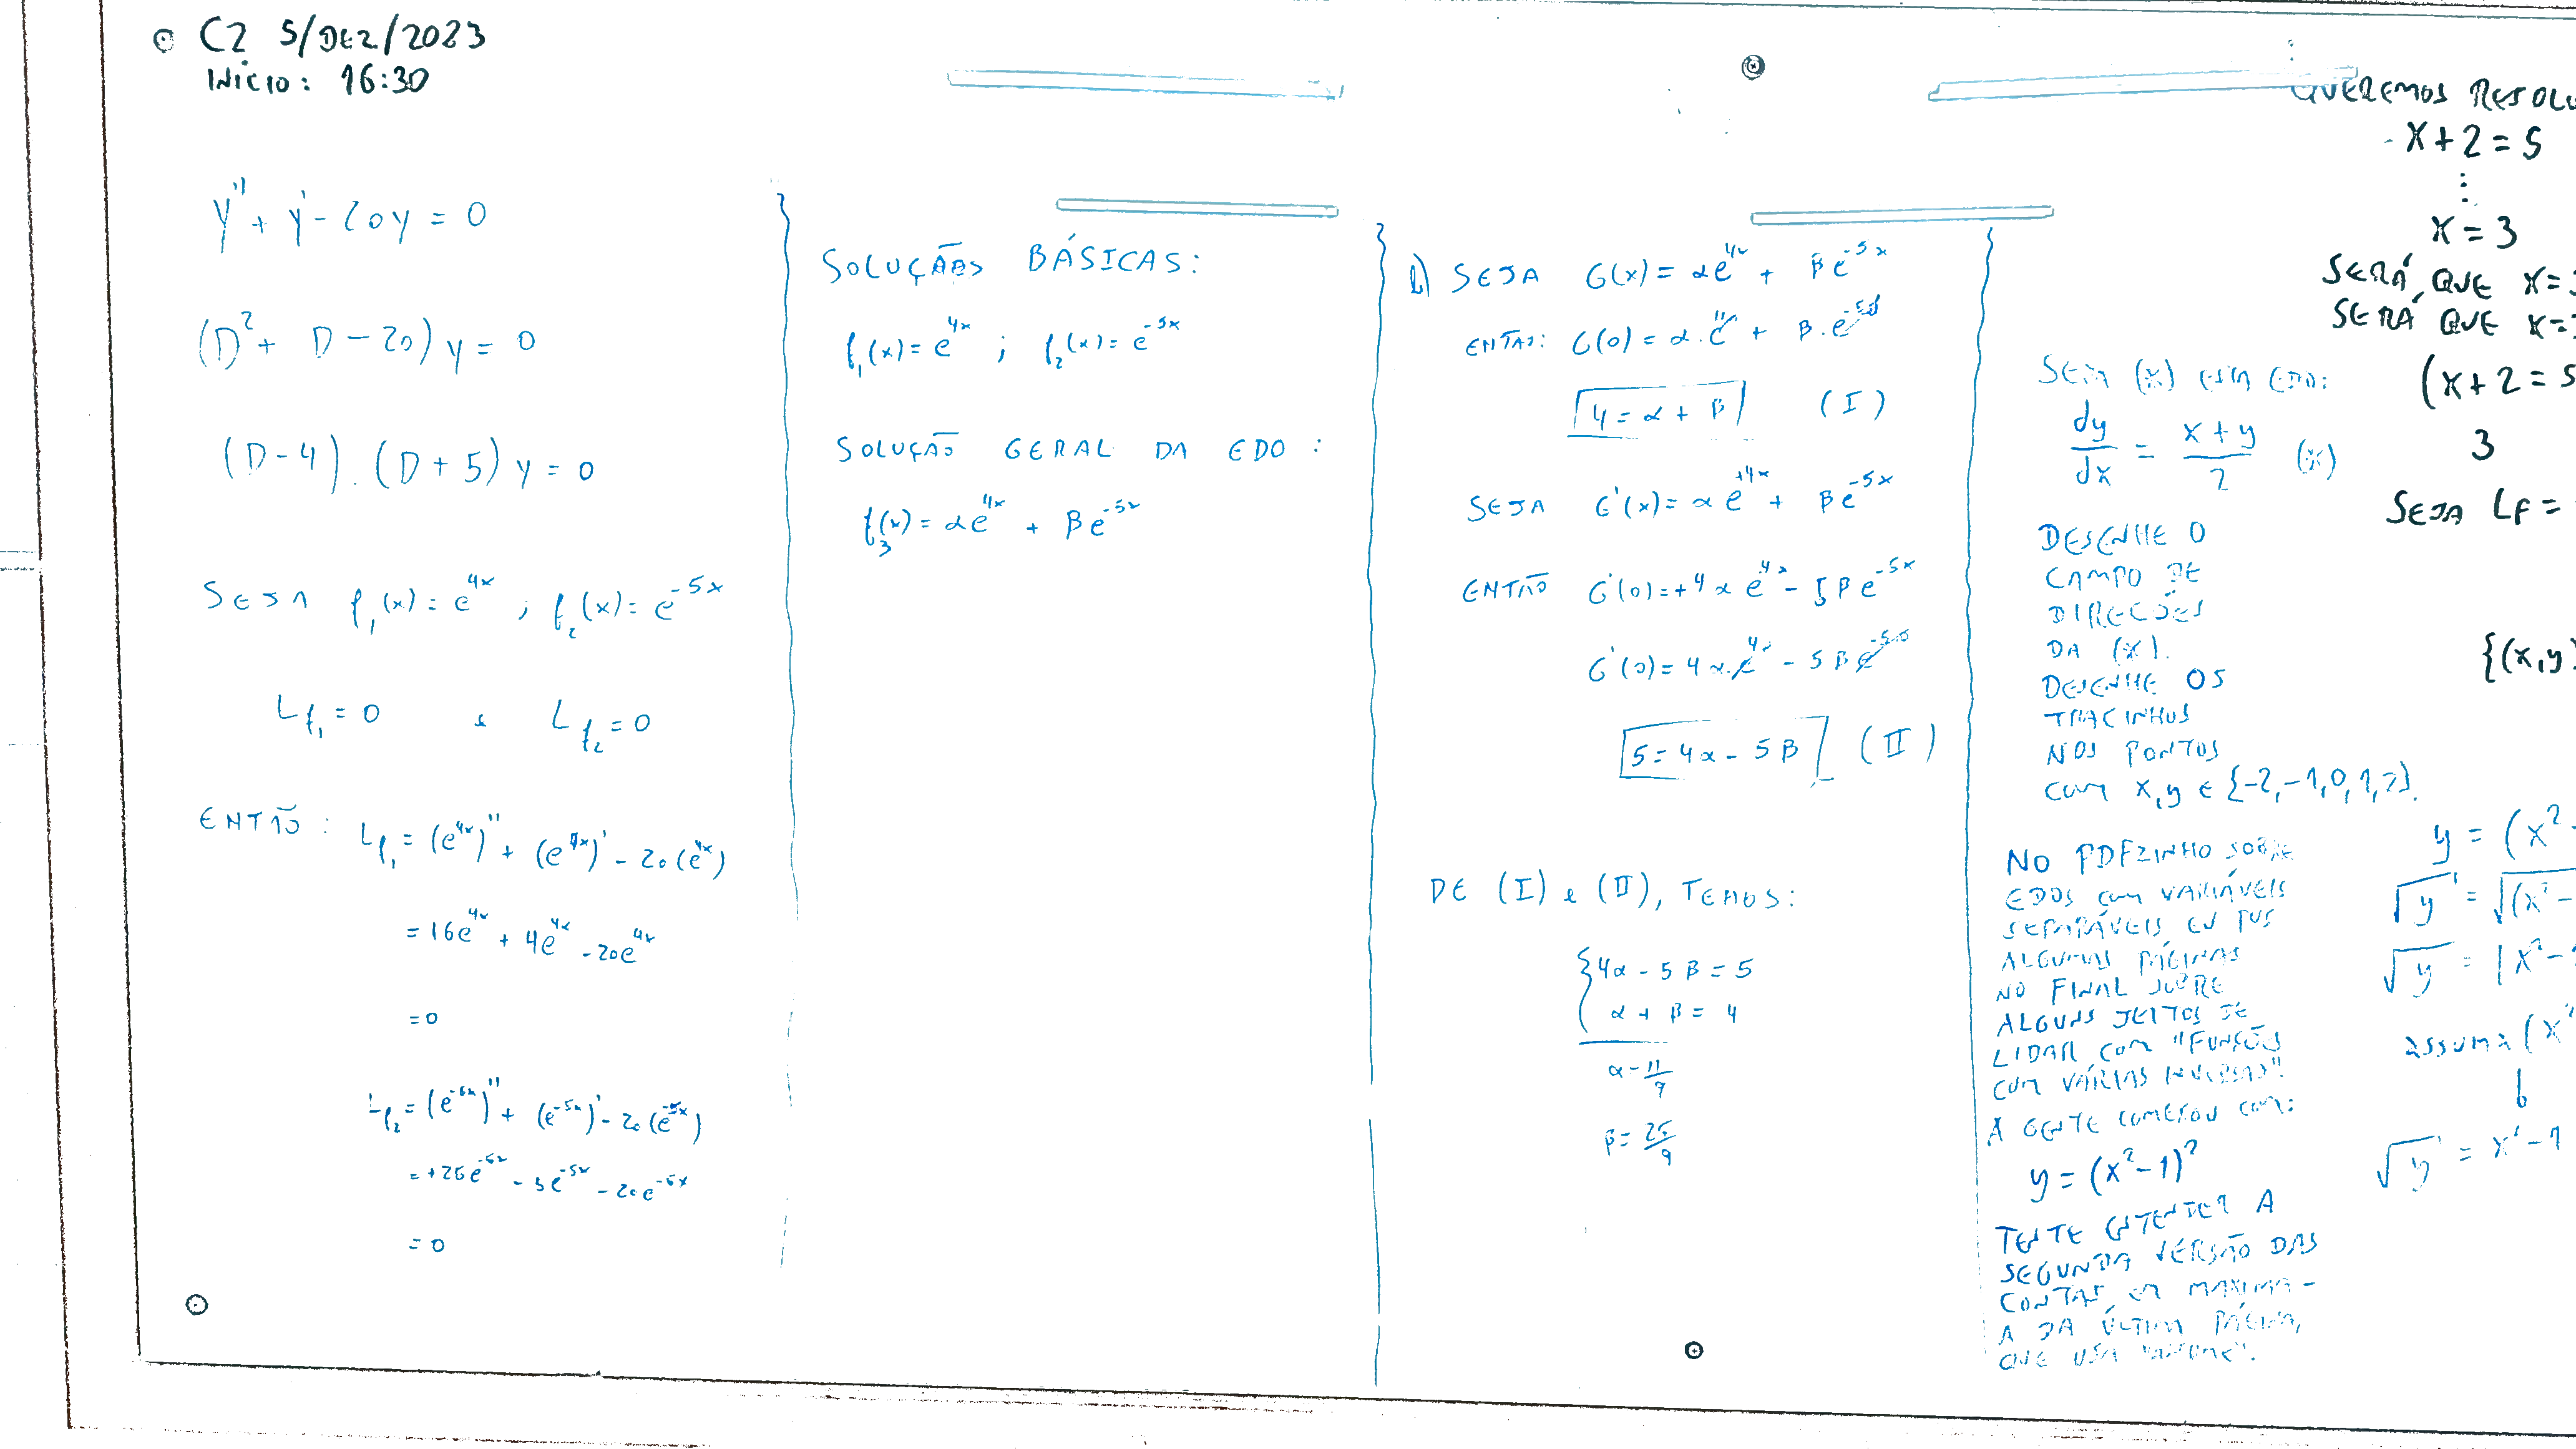 C2 5/DEZ/2023
INÍCIO: 16:30
y'' + y' - 20y = 0
(D² + D - 20) y = 0
(D - 4) . (D + 5) y = 0
SEJA f₁(x) = e^{4x} ; f₂(x) = e^{-5x}
L f₁ = 0 e L f₂ = 0
ENTÃO : L f₁ = (e^{4x})'' + (e^{4x})' - 20 (e^{4x})
= 16e^{4x} + 4e^{4x} - 20e^{4x}
= 0
L f₂ = (e^{-5x})'' + (e^{-5x})' - 20 (e^{-5x})
= +25e^{-5x} - 5e^{-5x} - 20e^{-5x}
= 0
SOLUÇÕES BÁSICAS:
f₁(x) = e^{4x} ; f₂(x) = e^{-5x}
SOLUÇÃO GERAL DA EDO :
f₃(x) = αe^{4x} + βe^{-5x}
b) SEJA G(x) = αe^{4x} + βe^{-5x}
ENTÃO: G(0) = α.e^{4.0} + β.e^{-5.0}
4 = α + β (I)
SEJA G'(x) = αe^{+4x} + βe^{-5x}
ENTÃO G'(0) = +4αe^{4x} - 5βe^{-5x}
G'(0) = 4α.e^{4.0} - 5βe^{-5.0}
5 = 4α - 5β (II)
DE (I) e (II), TEMOS:
{4α - 5β = 5
α + β = 4
α - 11/9
β = 25/9
SEJA (*) ESTA EDO:
dy/dx = (x+y)/2 (*)
DESENHE O
CAMPO DE
DIREÇÕES
DA (*).
DESENHE OS
TRACINHOS
NOS PONTOS
COM x,y ∈ {-2,-1,0,1,2}.
NO PDFZINHO SOBRE
EDOS COM VARIÁVEIS
SEPARÁVEIS EU PUS
ALGUMAS PÁGINAS
NO FINAL SOBRE
ALGUNS JEITOS DE
LIDAR COM "FUNÇÕES
COM VÁRIAS INVERSAS".
A GENTE COMEÇOU COM:
y = (x²-1)²
TENTE ENTENDER A
SEGUNDA VERSÃO DAS
CONTAS EM MAXIMA -
A DA ÚLTIMA PÁGINA,
QUE USA "ASSUME".
QUEREMOS RESOLV
x + 2 = 5
⋮
x = 3
SERÁ QUE x=3
SERÁ QUE x=
(x+2=5
3
SEJA Lf =
{(x,y)
y = (x²-
√y = √(x²-
√y = |x²-
assuma (x²
√y = x²-1